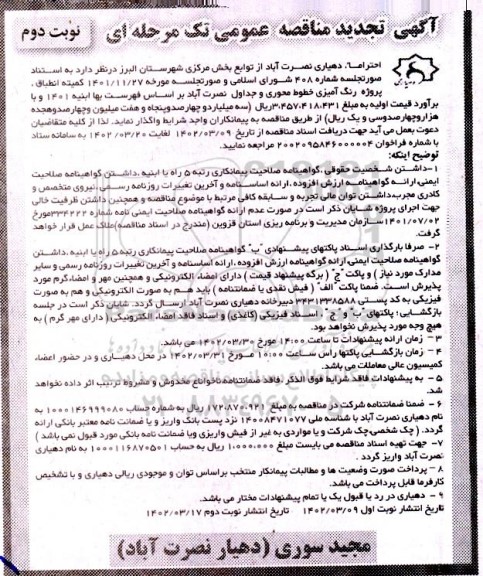 آگهی تجدید مناقصه عمومی تک مرحله ای
نوبت دوم
احتراما"، دهیاری نصرت آباد از توابع بخش مرکزی شهرستان البرز درنظر دارد به استناد
صورتجلسه شماره ۴۰۸ شورای اسلامی و صورتجلسه مورخه ۱۴۰۱/۱۱/۲۷ کمیته انطباق،
پروژه رنگ آمیزی خطوط محوری و جداول نصرت آباد بر اساس فهرست بها ابنیه ۱۴۰۱ و با
برآورد قیمت اولیه به مبلغ ۳٫۴۵۷٫۴۱۸٫۴۳۱ریال (سه میلیاردو چهارصدوپنجاه و هفت میلیون وچهارصدوهجده
هزاروچهارصدوسی و یک ریال) از طریق مناقصه به پیمانکاران واجد شرایط واگذار نماید. لذا از کلیه متقاضیان
دعوت بعمل می آید جهت دریافت اسناد مناقصه از تاریخ ۱۴۰۲/۰۳/۰۹ لغایت ۱۴۰۲/۰۳/۲۰ به سامانه ستاد
با شماره فراخوان ۲۰۰۲۰۹۵۸۴۶۰۰۰۰۰۴ مراجعه نمایید.
توضیح اینکه:
۱-داشتن شخصیت حقوقی ،گواهینامه صلاحیت پیمانکاری رتبه ۵ راه یا ابنیه ،داشتن گواهینامه صلاحیت
ایمنی،ارائه گواهینامه ارزش افزوده ،ارائه اساسنامه و آخرین تغییرات روزنامه رسمی،نیروی متخصص و
کادری مجرب،داشتن توان مالی تجربه و سابقه کافی مرتبط با موضوع مناقصه و همچنین داشتن ظرفیت خالی
جهت اجرای پروژه شایان ذکر است در صورت عدم ارائه گواهینامه صلاحیت ایمنی نامه شماره ۲۳۴۲۲۲مورخ
۱۴۰۱/۰۷/۰۲سازمان مدیریت و برنامه ریزی استان قزوین (مندرج در اسناد مناقصه)ملاک عمل قرار خواهد
گرفت.
۲- صرفا بارگذاری اسناد پاکتهای پیشنهادی "ب" گواهینامه صلاحیت پیمانکاری رتبه ۵ راه یا ابنیه ،داشتن
گواهینامه صلاحیت ایمنی ارائه گواهینامه ارزش افزوده ،ارائه اساسنامه و آخرین تغییرات روزنامه رسمی و سایر
مدارک مورد نیاز ) و پاکت "ج" ( برگه پیشنهاد قیمت ) دارای امضاء الکترونیکی و همچنین مهر و امضاءگرم مورد
پذیرش است. ضمنا پاکت "الف" ( فیش نقدی یا ضمانتنامه ) باید هم به صورت الکترونیکی و هم به صورت
فیزیکی به کد پستی ۳۴۳۱۳۳۸۵۸۸ دبیرخانه دهیاری نصرت آباد ارسال گردد. شایان ذکر است در جلسه
بازگشایی؛ پاکتهای "ب" و "ج" ، اسناد فیزیکی (کاغذی) و اسناد فاقد امضاء الکترونیکی ( دارای مهر گرم ) به
هیچ وجه مورد پذیرش نخواهد بود.
۳ - زمان ارائه پیشنهادات تا ساعت ۱۴:۰۰ مورخ ۱۴۰۲/۰۳/۳۰ می باشد.
۴ - زمان بازگشایی پاکتها رأس ساعت ۱۰:۰۰ مورخ ۱۴۰۲/۰۳/۳۱ در محل دهیاری و در حضور اعضاء
کمیسیون عالی معاملات می باشد.
۵ - به پیشنهادات فاقد شرایط فوق الذکر ،فاقد ضمانتنامه ناخوانای مخدوش و مشروط ترتیب اثر داده نخواهد
شد.
۶ - ضمنا ضمانتنامه شرکت در مناقصه به مبلغ ۱۷۲٫۸۷۰٫۹۲۱ ریال به شماره حساب ۱۰۰۰۱۴۶۹۹۹۰۸۰ به
نام دهیاری نصرت آباد با شناسه ملی ۱۴۰۰۸۴۷۱۰۷۷ نزد پست بانک واریز و یا ضمانت نامه معتبر بانکی ارائه
گردد. ( چک شخصی،چک شرکت و یا مواردی به غیر از فیش واریزی ویا ضمانت نامه بانکی مورد قبول نمی باشد )
۷- جهت تهیه اسناد مناقصه می بایست مبلغ ۱٫۰۰۰٫۰۰۰ ریال به حساب ۱۰۰۰۱۱۶۸۷۰۵۰۱ به نام دهیاری
نصرت آباد واریز گردد .
۸ - پرداخت صورت وضعیت ها و مطالبات پیمانکار منتخب براساس توان و موجودی ریالی دهیاری و با تشخیص
کارفرما قابل پرداخت می باشد.
۹ - دهیاری در رد یا قبول یک یا تمام پیشنهادات مختار می باشد.
تاریخ انتشار نوبت اول ۱۴۰۲/۰۳/۰۹ تاریخ انتشار نوبت دوم ۱۴۰۲/۰۳/۱۷
مجید سوری (دهیار نصرت آباد)